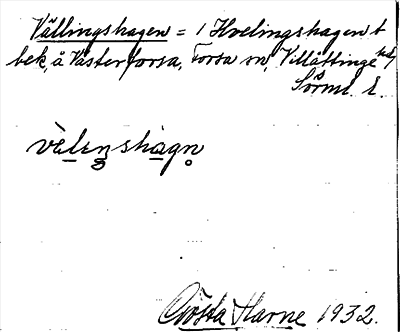 Vällingshagen = 1 Hvelingshagen t
bek, å Västerforsa, Forsa sn, Villåttinge hd,
Sörml. l.
vèlenshàgn
Gösta Harne 1932.